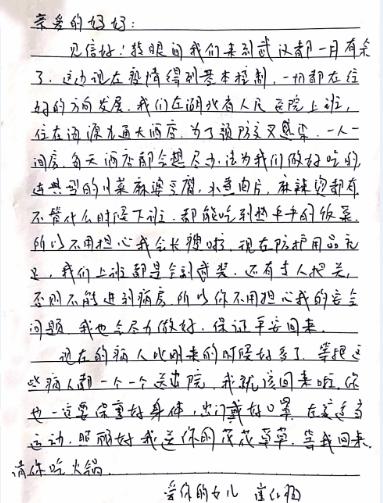 亲爱的妈妈:
见信好!转眼间我们来到武汉都一月有余
了,这边现在疫情得到基本控制,一切都在往
好的方向发展。我们在湖北省人民医院上班,
住在海源九通大酒店,为了预防交叉感染,一人一
间房,每天酒店都会想尽办法为我们做好吃的,
典型的川菜麻婆豆腐,水煮肉片,麻辣烫都有
不管什么时候下班,都能吃到热乎乎的饭菜,
所以不用担心我会长瘦哦,现在防护用品充
足,我们上班都是全副武装,还有专人把关,
否则不能进到病房,所以你不用担心我的安全
问题,我也会尽力做好,保证平安回来。
现在的病人比刚来的时候好多了,等把这
些病人都一个一个送出院,我就该回来啦,你
也一定要保重好身体,出门戴好口罩,在家适当
运动,照顾好我送你的花花草草,等我回来
请你吃火锅。
爱你的女儿